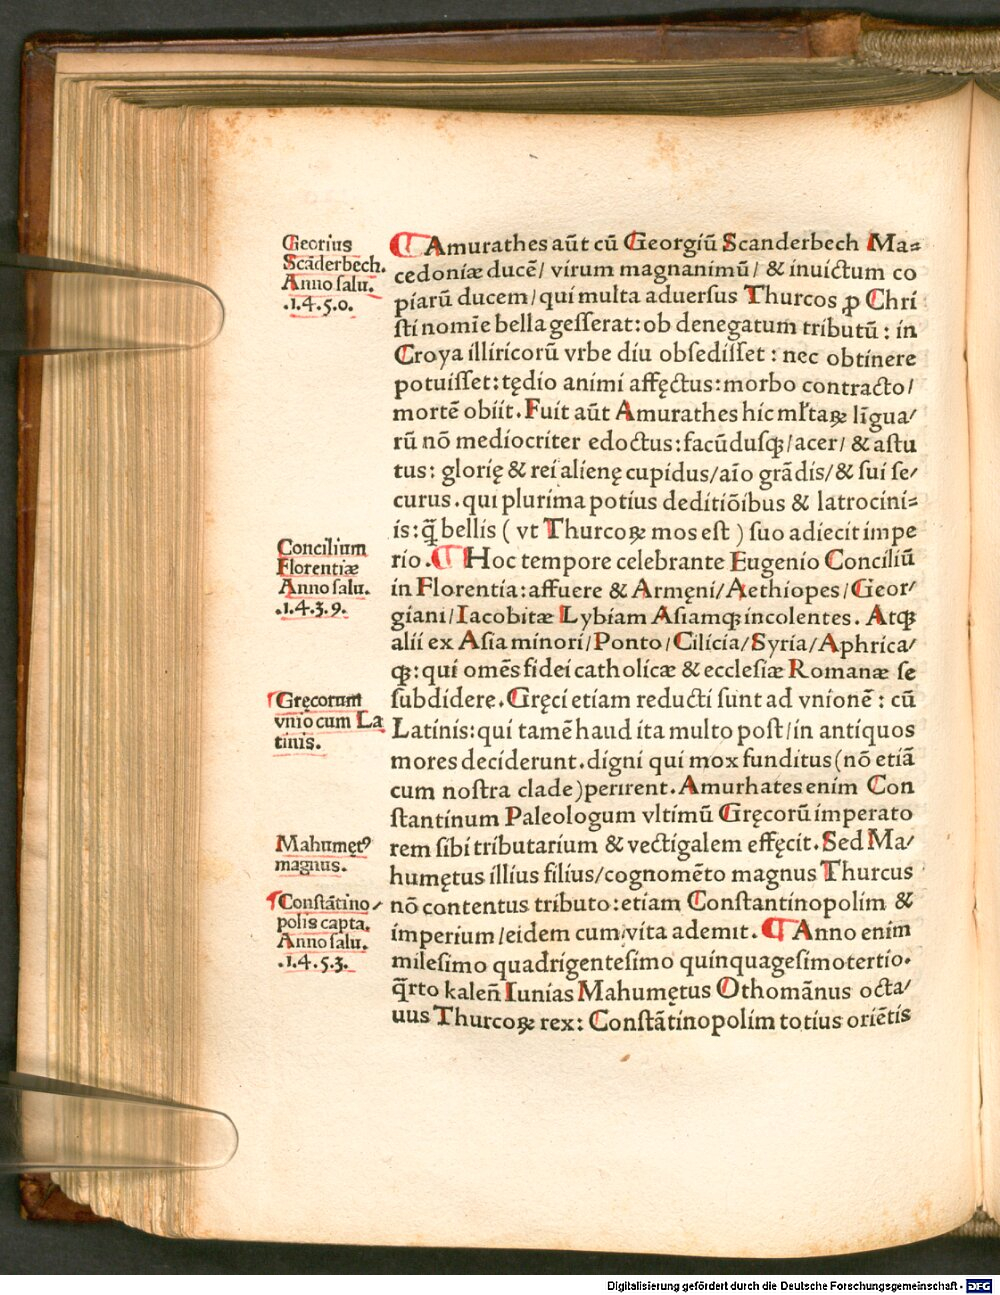 Georius
Scāderbech.
Anno salu.
.1.4.5.0.
Concilium
Florentiæ
Anno salu.
.1.4.3.9.
Gręcorum
vnio cum La
tinis.
Mahumętꝰ
magnus.
Constātino/
polis capta.
Anno salu.
.1.4.5.3.
¶ Amurathes aūt cū Georgiū Scanderbech Ma⸗
cedoniæ ducē/ virum magnanimū/ & inuictum co
piarū ducem/ qui multa aduersus Thurcos ꝓ Chri
sti nomīe bella gesserat: ob denegatum tributū: in
Croya illiricorū vrbe diu obsedisset: nec obtinere
potuisset: tędio animi affęctus: morbo contracto/
mortē obiit. Fuit aūt Amurathes hic mƚtaꝝ līgua/
rū nō mediocriter edoctus: facūdusqꝫ/ acer/ & astu
tus: glorię & rei alienę cupidus/ aīo grādis/ & sui se/
curus. qui plurima potius deditiōibus & latrocini⸗
is: q̄ bellis ( vt Thurcoꝝ mos est ) suo adiecit impe
rio. ¶ Hoc tempore celebrante Eugenio Conciliū
in Florentia: affuere & Armęni/ Aethiopes/ Geor/
giani/ Iacobitæ Lybiam Asiamqꝫ incolentes. Atqꝫ
alii ex Asia minori/ Ponto/ Cilicia/ Syria/ Aphrica/
qꝫ: qui omēs fidei catholicæ & ecclesiæ Romanæ se
subdidere. Gręci etiam reducti sunt ad vnionē: cū
Latinis: qui tamē haud ita multo post/ in antiquos
mores deciderunt. digni qui mox funditus (nō etiā
cum nostra clade) perirent. Amurhates enim Con
stantinum Paleologum vltimū Gręcorū imperato
rem sibi tributarium & vectigalem effęcit. Sed Ma/
humętus illius filius/ cognomēto magnus Thurcus
nō contentus tributo: etiam Constantinopolim &
imperium/ eidem cum vita ademit. ¶ Anno enim
milesimo quadrigentesimo quinquagesimotertio.
q̄rto kaleñ Iunias Mahumętus Othomānus octa/
uus Thurcoꝝ rex: Constātinopolim totius oriētis
Digitalisierung gefördert durch die Deutsche Forschungsgemeinschaft - DFG